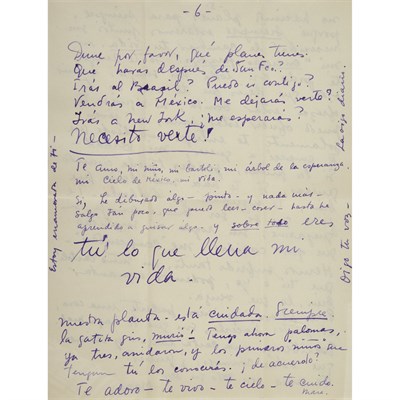 -6-
Dime por favor, qué planes tienes.
Qué harás después de San Fco?
Irás al Brasil? Puedo ir contigo?
Vendrás a México. Me dejarás verte?
Irás a New York, ¿me esperarás?
Necesito verte!
Te amo, mi niño, mi bartoli, mi árbol de la esperanza
mi cielo de México, mi vida.
Si, he dibujado algo - pinto - y nada más -
Salgo tan poco - que puedo leer - coser - hasta he
aprendido a guisar algo - y sobre todo eres
tú lo que llena mi
vida.
nuestra planta - está cuidada. Siempre
la gatita gris, murió! Tengo ahora palomas,
ya tres, anidaron, y los primeros niños que
Tengan tú los conocerás. ¿de acuerdo?
Te adoro - te vivo - te cielo - te cuido.
Estoy enamorada de ti -
Oigo tu voz -
diario.